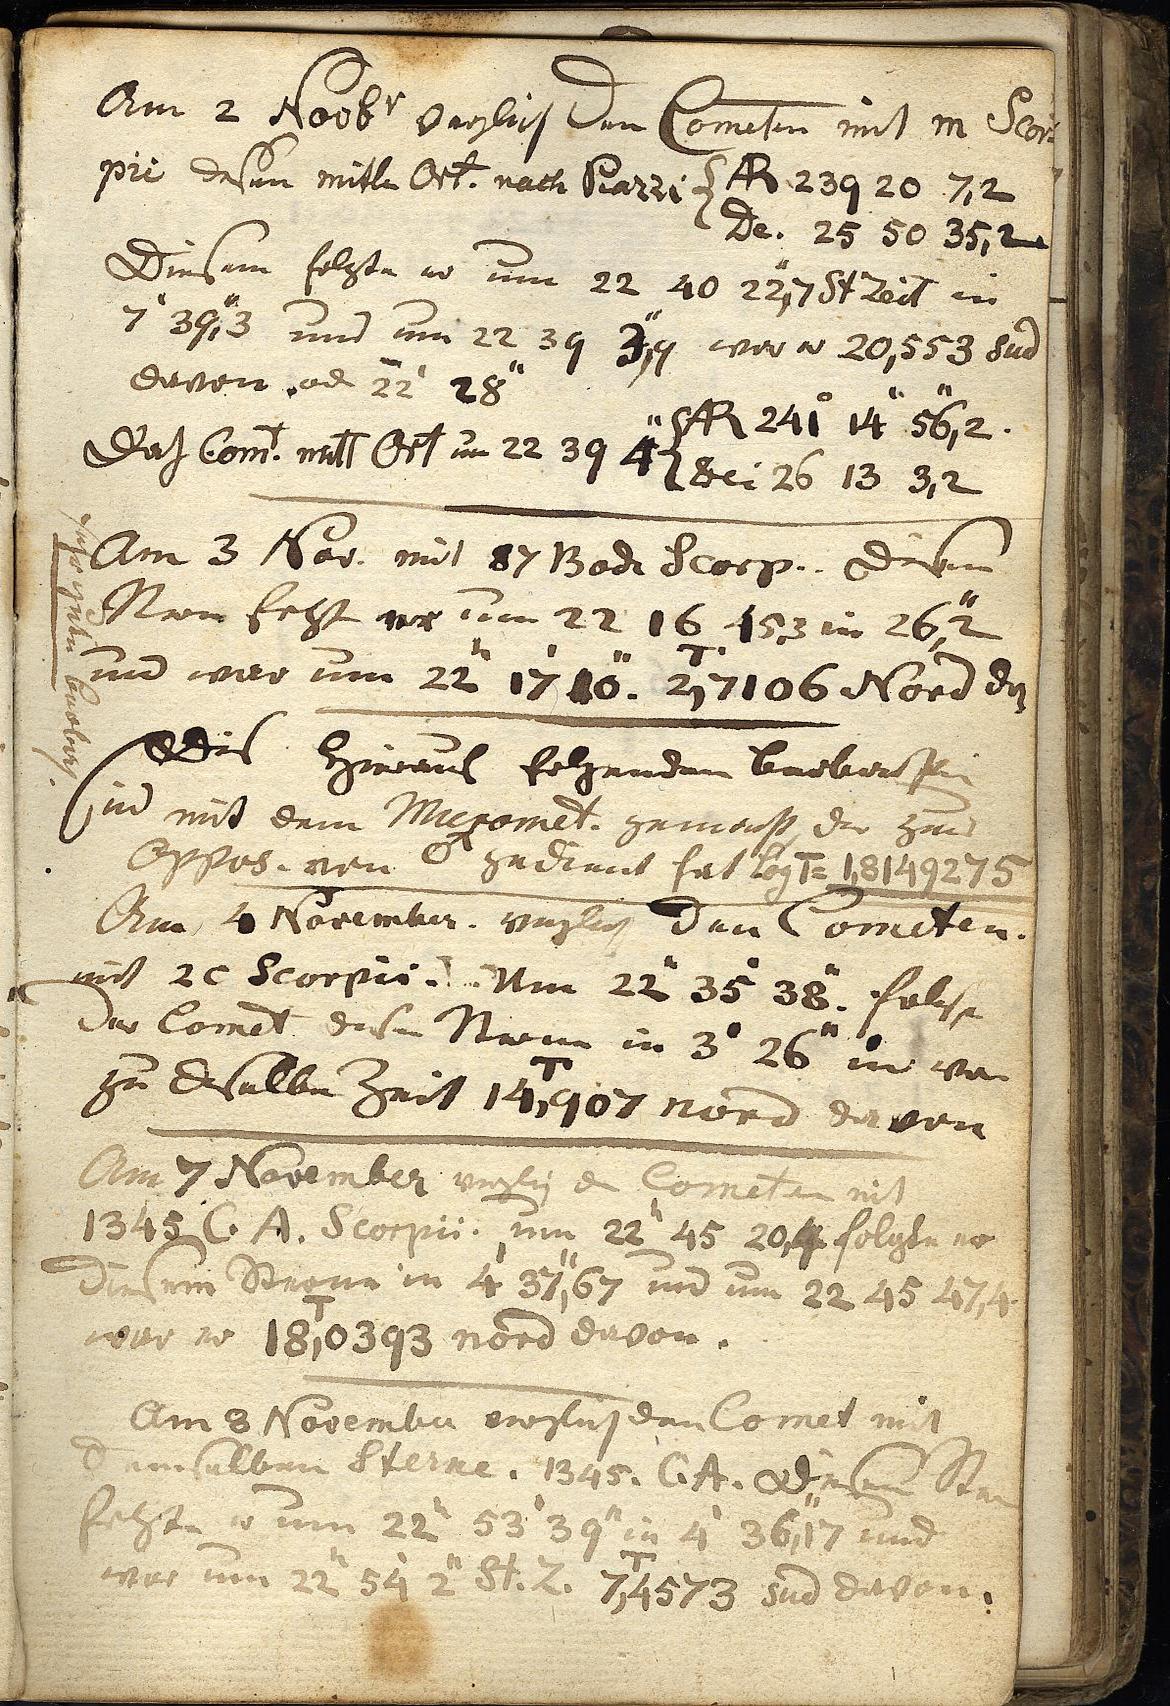 Am 2 Novbr verglich den Cometen mit m Scor
pii dessen mittl Ort. nach Piazzi { AR 239 20 7,2
De. 25 50 35,2
Diesem folgte er um 22 40 22",7 St Zeit in
7' 39",3 und um 22 39 3",9 war er 20,553 sud
davon od 22' 28"
Des Comt. mittl Ort um 22 39 4" { AR 241° 14' 56",2.
Dec 26 13 3,2
Am 3 Nov. mit 87 Bode Scorp. diesem
Stern folgt er um 22 16 45,3 in 26",2
und war um 22h 17' 10". 2,7106 Nord
Die hieraus folgenden
sind mit dem Micromet. gemacht, der zur
Oppos. von ♂ gedient hat Log T= 1,8149275
Am 4 November. verglich den Cometen.
mit 2 c Scorpii. Um 22h 35' 38". folgte
der Comet diesem Stern in 3' 26" und war
zu derselben Zeit 14,907 nord davon
Am 7 November verglich den Cometen mit
1345 C. A. Scorpii. um 22h 45 20,4 folgte er
diesem Sterne in 4' 37",67 und um 22 45 47,4
war er 18,0393 nord davon.
Am 8 November verglich den Comet mit
demselben Sterne. 1345. C. A. diesem Stern
folgte er um 22h 53' 39" in 4' 36",17 und
war um 22h 54' 2" St. Z. 7,4573 sud davon.